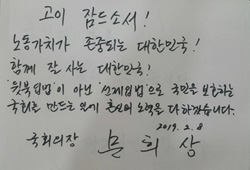 고이 잠드소서!
노동가치가 존중되는 대한민국!
함께 잘 사는 대한민국!
'뒷북입법'이 아닌 '선제입법'으로 국민을 보호하는
국회를 만드는 일에 혼신의 노력을 다하겠습니다.
2019. 2. 8
국회의장 문희상